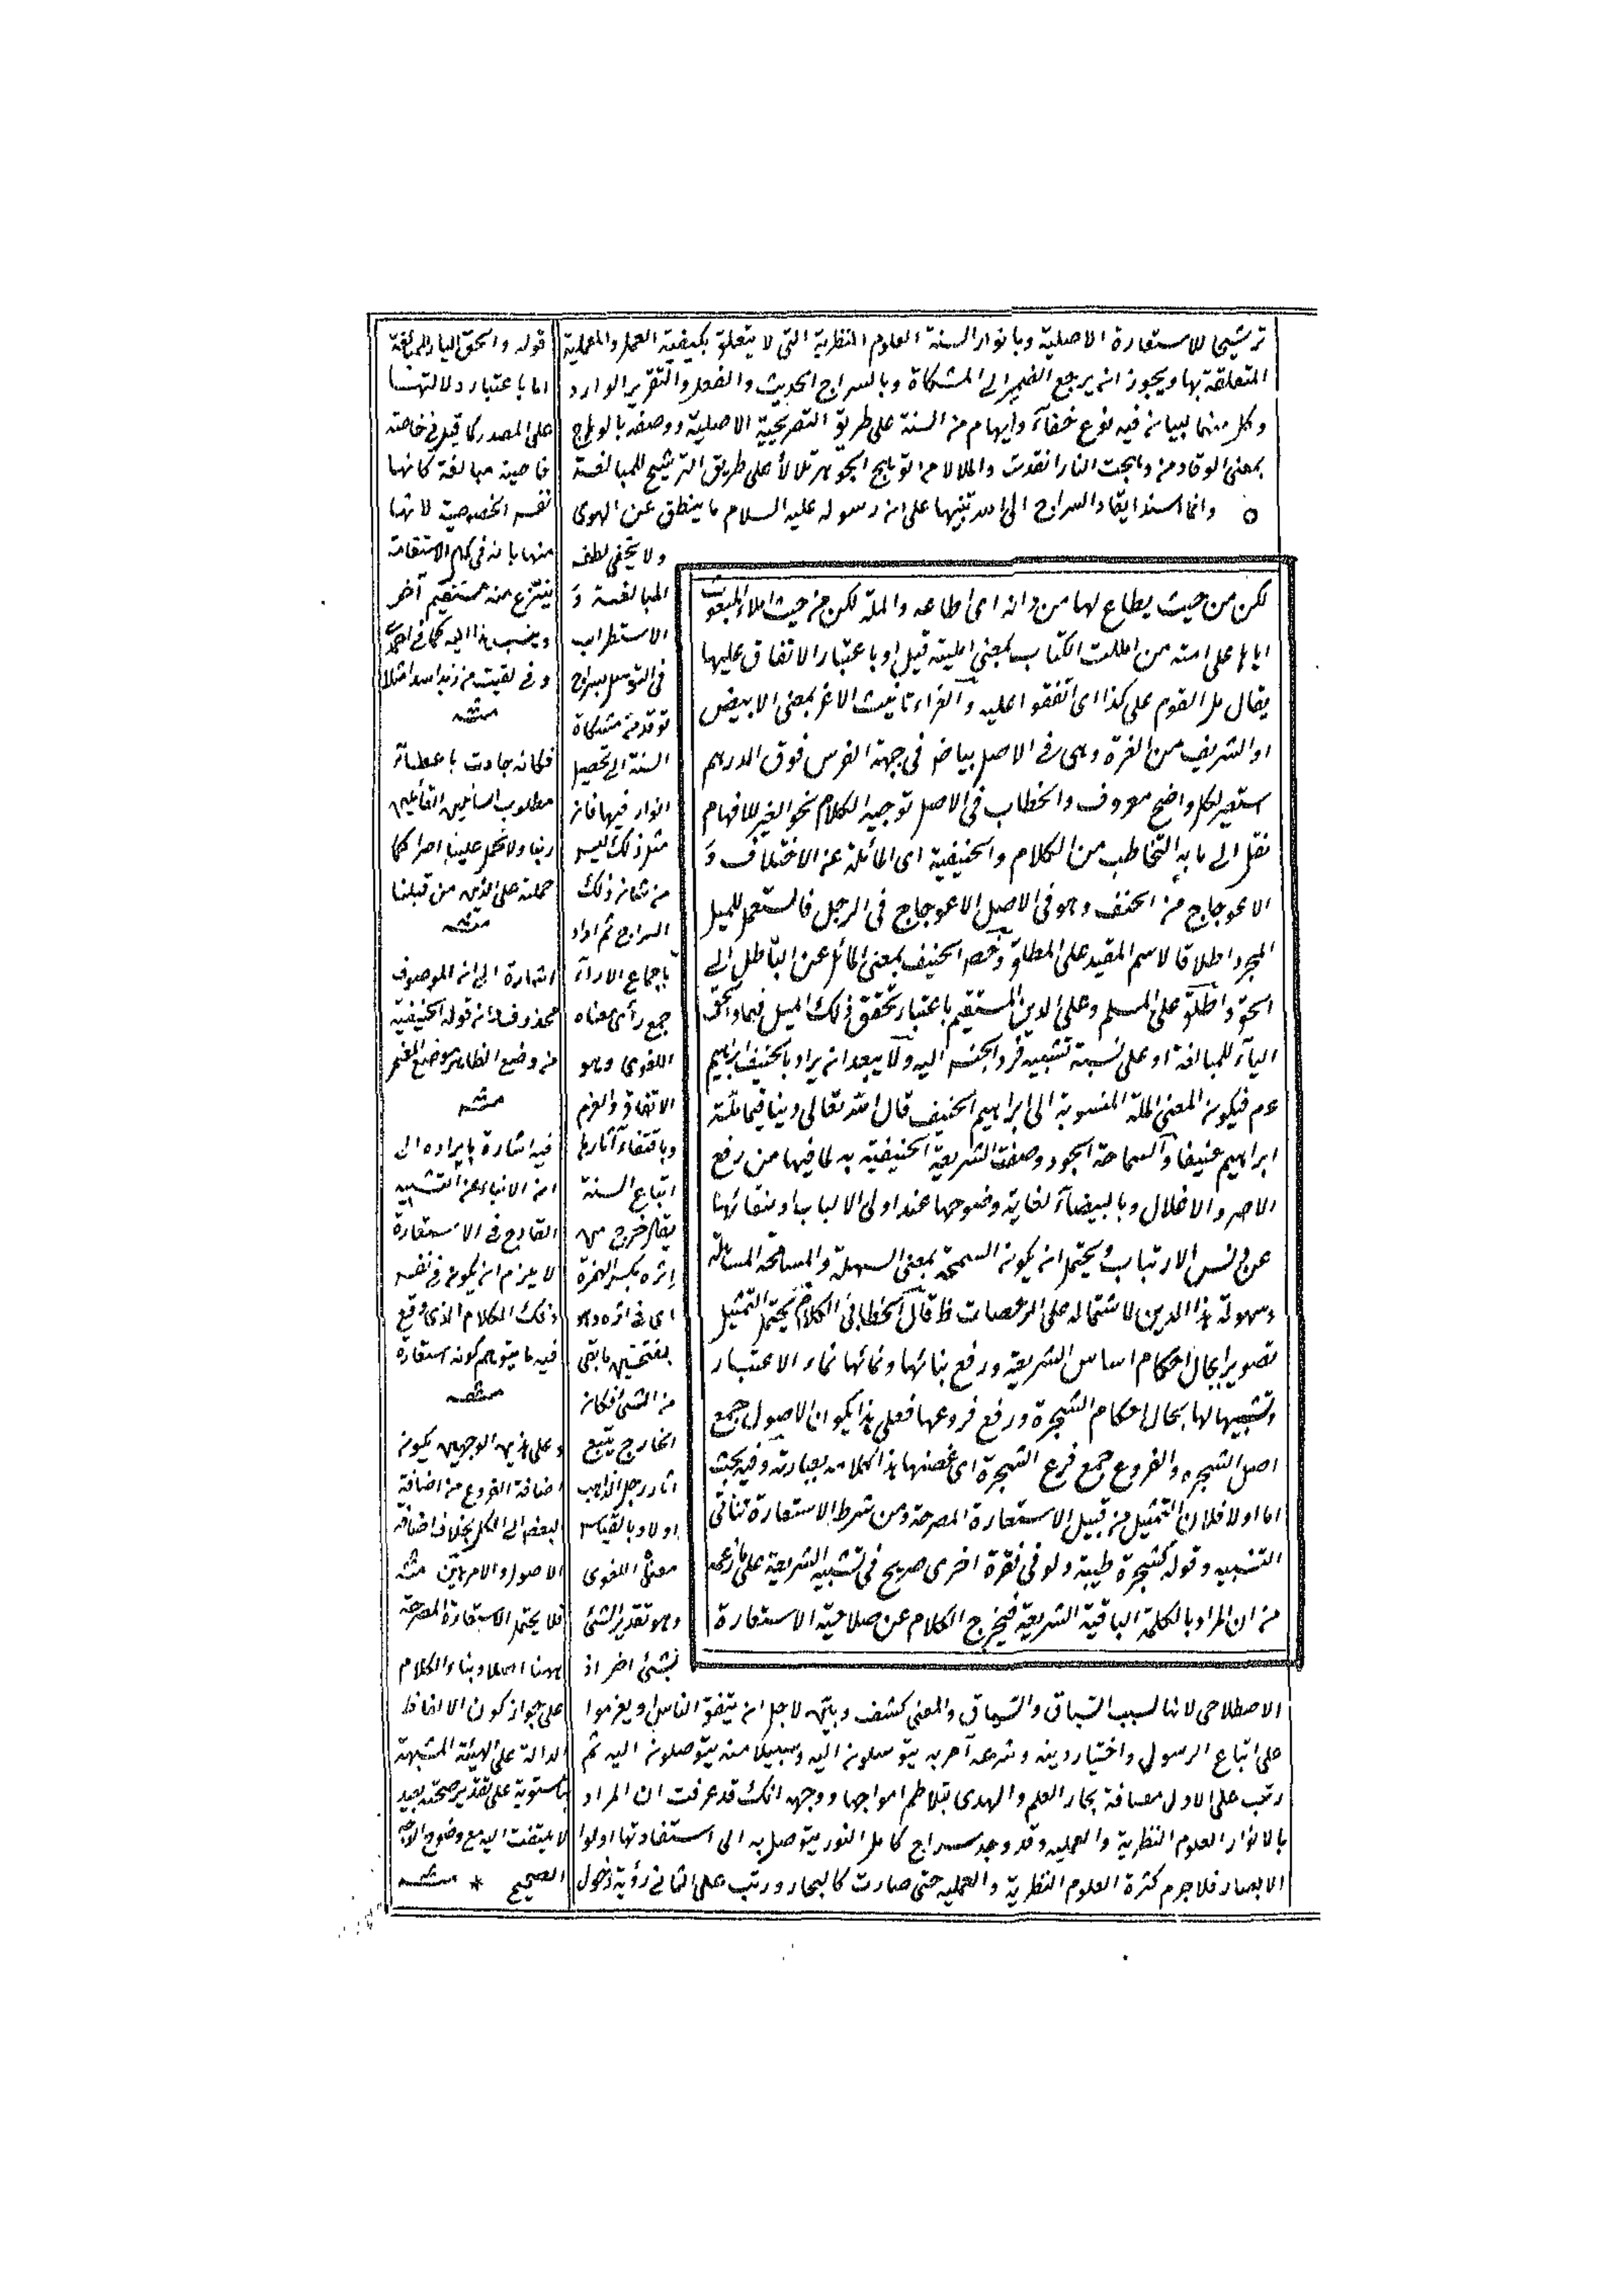 ترشيحا للاستعارة الاصلية وبانوار السنة العلوم النظرية التى لا يتعلق بكيفية العمل والعملية
المتعلقة بها ويجوز ان يرجع الضمير الى المشكاة وبالسراج الحديث والفعل والتقرير الوارد
وكل منهما لبيان فيه نوع خفآء وايهام من السنة على طريق التصريحية الاصلية ووصفه بالوهاج
بمعنى الوقاد من وهجت النار اتقدت والتلالا من توهج الجوهر تلالأ على طريق الترشيح للمبالغة
وانما اسند ايقاد السراج الى الله تنبيها على ان رسوله عليه السلام ما ينطق عن الهوى
ولا يخفى لطف
المبالغة و
الاستطراب
فى التوسل بسراج
توقد من مشكاة
السنة الى تحصيل
انوار فيها فان
مثل ذلك ليس
من شان ذلك
السراج ثم اراد
باجماع الارآء
جمع رأى معناه
اللغوى وهو
الاتفاق والعزم
وباقتفاء آثارها
اتباع السنة
يقال خرج من
اثره بكسر الهمزة
اى فى اثره وهو
بفتحتين ما بقى
من الشئ فكان
الخارج يتبع
اثار رجل الذاهب
اولا وبالقياس
معناه اللغوى
وهو تقدير الشئ
بشئ اخر اذ
لكن من حيث يطاع لها من دانه اى اطاعه والملة لكن من حيث املاء المبعوث
اياها على امته من امللت الكتاب بمعنى امليته قيل او باعتبار الاتفاق عليها
يقال مل القوم على كذا اى اتفقوا عليه والغراء تانيث الاغر بمعنى الابيض
او الشريف من الغرة وهى فى الاصل بياض فى جبهة الفرس فوق الدرهم
استعير لكل واضح معروف والخطاب فى الاصل توجيه الكلام نحو الغير للافهام
نقل الى ما به التخاطب من الكلام والحنيفية اى المائلة عن الاختلاف و
الاعوجاج من الحنف وهو فى الاصل الاعوجاج فى الرجل فاستعمل للميل
المجرد اطلاقا لاسم المقيد على المطلق وخص الحنيف بمعنى المائل عن الباطل الى
الحق واطلق على المسلم وعلى الدين المستقيم باعتبار تحقق ذلك الميل فيهما والحق
اليآء للمبالغة او على نسبة تشبيه فرد الجنس اليه ولا يبعد ان يراد بالحنيف ابراهيم
عم فيكون المعنى الملة المنسوبة الى ابراهيم الحنيف قال الله تعالى دينا قيما ملة
ابراهيم حنيفا والسماحة الجود وصفت الشريعة الحنيفية به لما فيها من رفع
الاصر والاغلال وبالبيضآء لغاية وضوحها عند اولى الالباب او بنقائها
عن دنس الارتياب ويحتمل ان يكون السمحة بمعنى السهلة والمسامحة المساهلة
وسهولة هذا الدين لاشتماله على الرخصات ظ قال الخطابى الكلام يحتمل التمثيل
تصويرا بحال احكام اساس الشريعة ورفع بنائها ونمائها نماء الاعتبار
وتشبيها لها بحال احكام الشجرة ورفع فروعها فعلى هذا يكون الاصول جمع
اصل الشجره والفروع جمع فرع الشجرة اى غصنها هذا كلامه بعبارته وفيه بحث
اما اولا فلان التمثيل من قبيل الاستعارة المصرحة ومن شرط الاستعارة تناسى
التشبيه وقوله كشجرة طيبة ولو فى فقرة اخرى صريح فى تشبيه الشريعة على ما زعمه
من ان المراد بالكلمة الباقية الشريعة فيخرج الكلام عن صلاحية الاستعارة
الاصطلاحى لا يناسب السباق والسياق والمعنى كشف وبين لاجل ان يتفق الناس ويعزموا
على اتباع الرسول واختيار دينه وشرعه آخر به يتوسلون اليه وسبيلا منه يتوصلون اليه ثم
رتب على الاول مصادفة بحار العلم والهدى بتلاطم امواجها ووجهه انك قد عرفت ان المراد
بالانوار العلوم النظرية والعمليه وقد وجد سراج كامل النور يتوصل به الى استفادتها اولوا
الابصار فلا جرم كثرة العلوم النظرية والعمليه حتى صارت كالبحار ورتب على الثانى رؤية دخول
قوله والحق اليآء للمبالغة
اما باعتبار دلالتها
على المصدر كما قيل فى خاصة
خاصية مبالغة كانها
نفس الخصوصية لا نها
منها بانه فى كمال الاستقامة
ينتزع منه مستقيم آخر
وينسب هذا اليه كما فى احمرى
وفى لقيت من زيد اسدا مثلا
منه
فكانه جادت باعطائه
مطلوب السائلين القائلين
ربنا ولا تحمل علينا اصرا كما
حملته على الذين من قبلنا
منه
اشارة الى ان الموصوف
محذوف وان قوله الحنيفية
من وضع الظاهر موضع المضمر
منه
فيه اشارة بايراده الى
ان الانباء عن التشبيه
القادح فى الاستعارة
لا يلزم ان يكون فى نفس
ذلك الكلام الذى وقع
فيه ما يتوهم كونه استعارة
منه
وعلى هذين الوجهين يكون
اضافة الفروع من اضافة
البعض الى الكل بخلاف اضافة
الاصول والامر هين منه
فلا يحتمل الاستعارة المصرحة
ههنا اصلا وبناء الكلام
على جواز كون الالفاظ
الدالة على الهيئة المشبهة
منوية على تقدير صحته بعيد
لا يلتفت اليه مع وضوح الوجه
الصحيح * منه